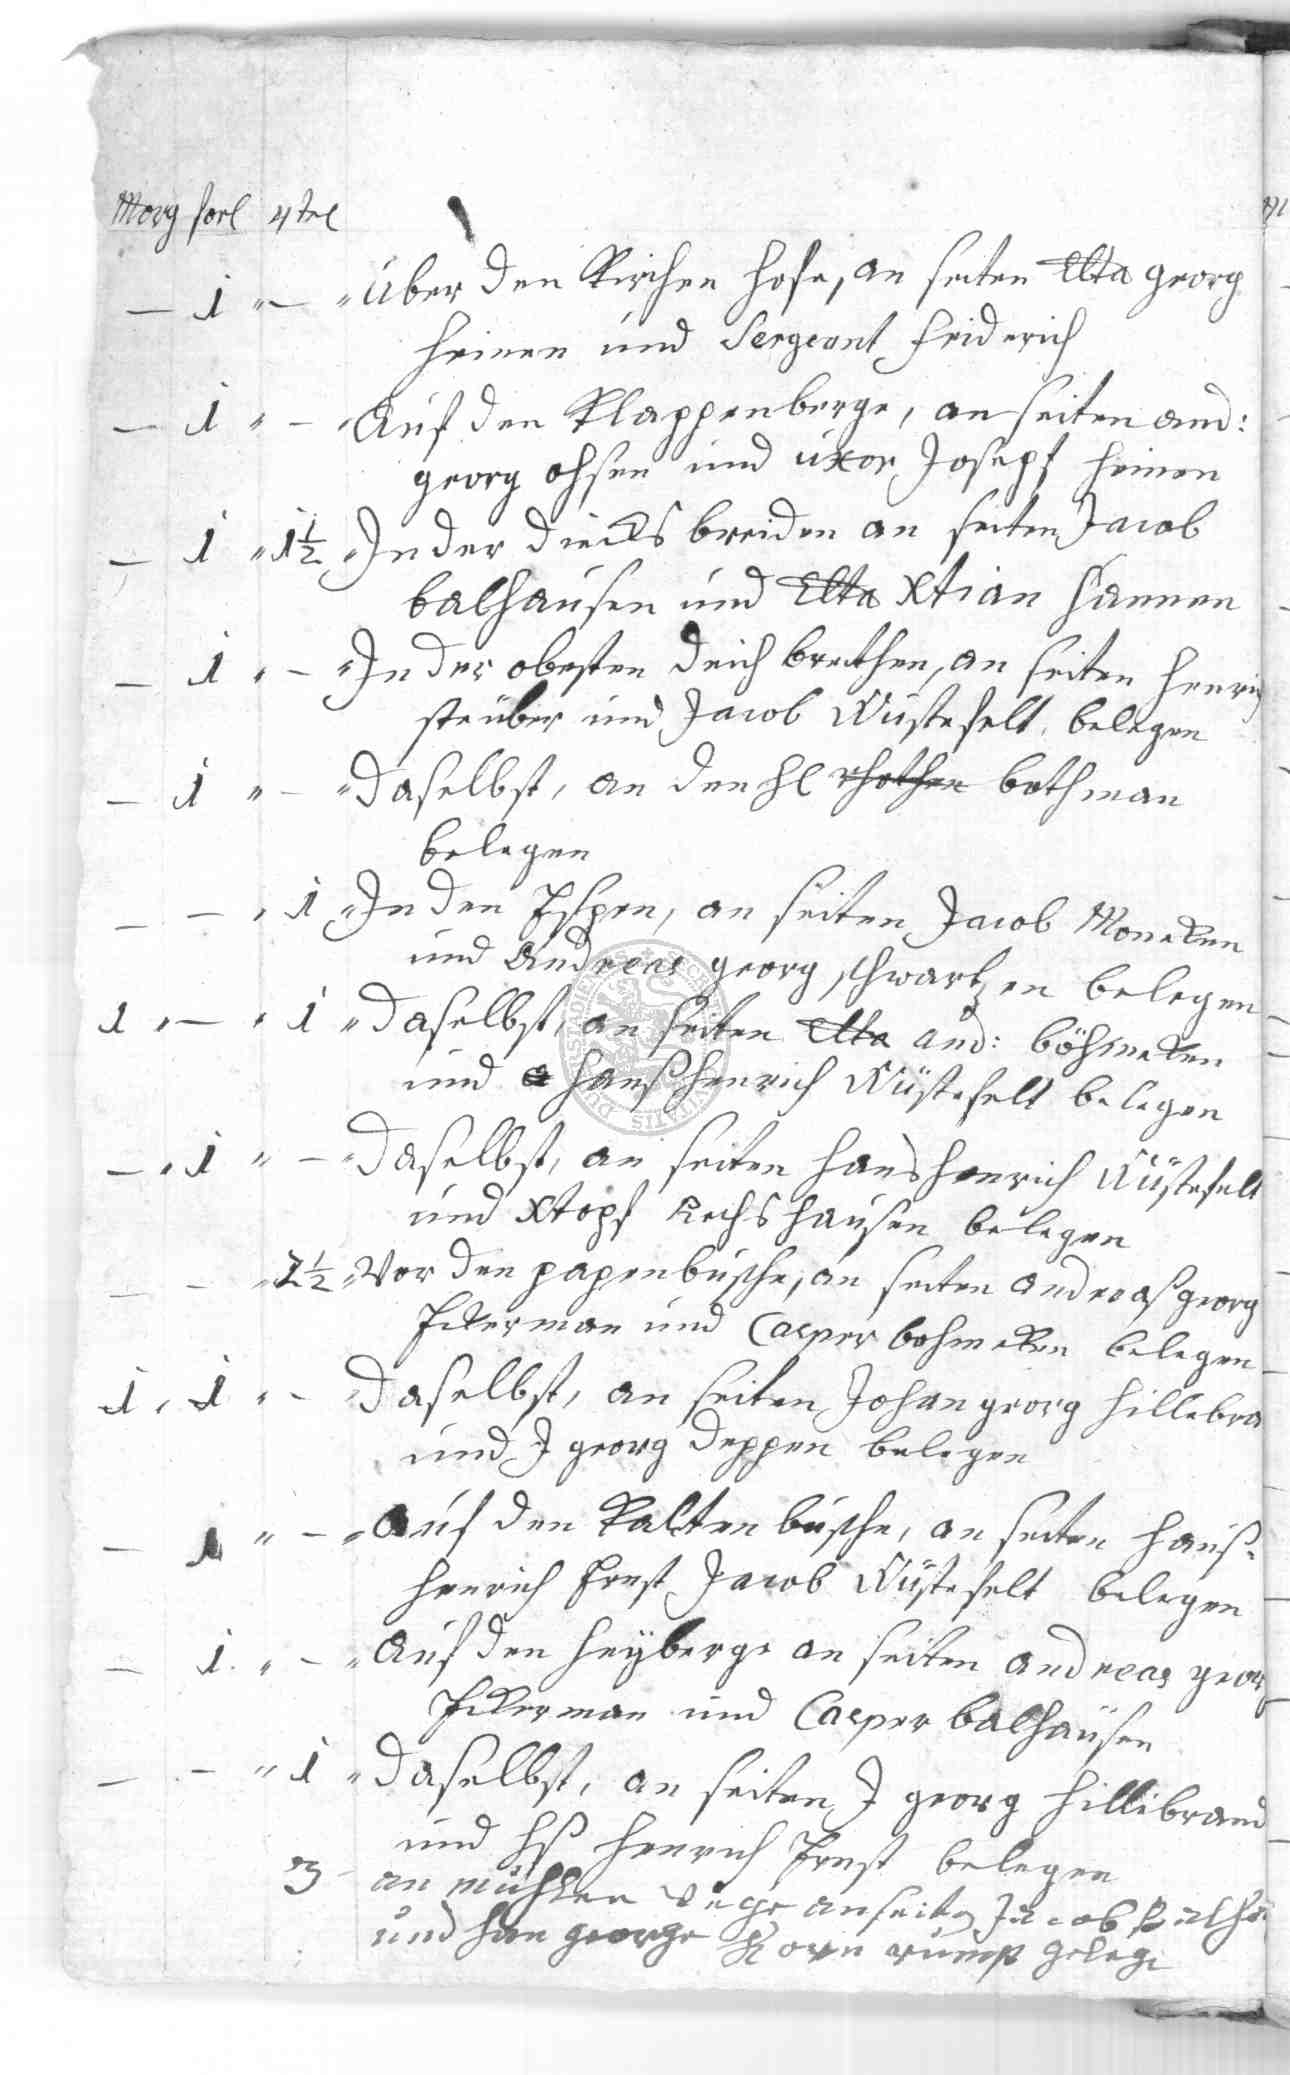 Morg forl 4tel
— 1 " — " Über den Kirchen hofe, an seiten Elta georg
heinen und Sergeant Friderich
— 1 " — " Auf den Klappenberge, an seiten and:
georg ohsen und uxor Joseph heinen
— 1 " 1½ " In der diecks breiden an seiten Jacob
balhausen und Elta Xtian hannen
— 1 " — " In der obersten deich breithen, an seiten henrich
steüber und Jacob Wüstefelt belegen
— 1 " — " Daselbst, an den hl bothman
belegen
— — " 1 " In den Espen, an seiten Jacob Moneken
und Andreas georg schwartzen belegen
1 " — " 1 " Daselbst, an seiten Elta and: böhmeken
und hanß henrich Wüstefelt belegen
— " 1 " — " Daselbst, an seiten hans henrich Wüstefelt
und Xtoph Rechshausen belegen
— — " 2½ " Vor den papenbusche, an seiten andreaß georg
Eckerman und Casper bohmeken belegen
1 " 1 " — " Daselbst, an seiten Johan georg hillebra
und J georg deppen belegen
— 1 " — " Auf den Kalten busche, an seiten hanß-
henrich Ernst Jacob Wüstefelt belegen
— 1 " — " Auf den heyberge an seiten andreas georg
Eckerman und Casper balhausen
— — " 1 " Daselbst, an seiten J georg hillibrand
und hß henrich Ernst belegen
3 — an mühlen wege an seiten Jacob Balha
und han george Kornrumpf gelege